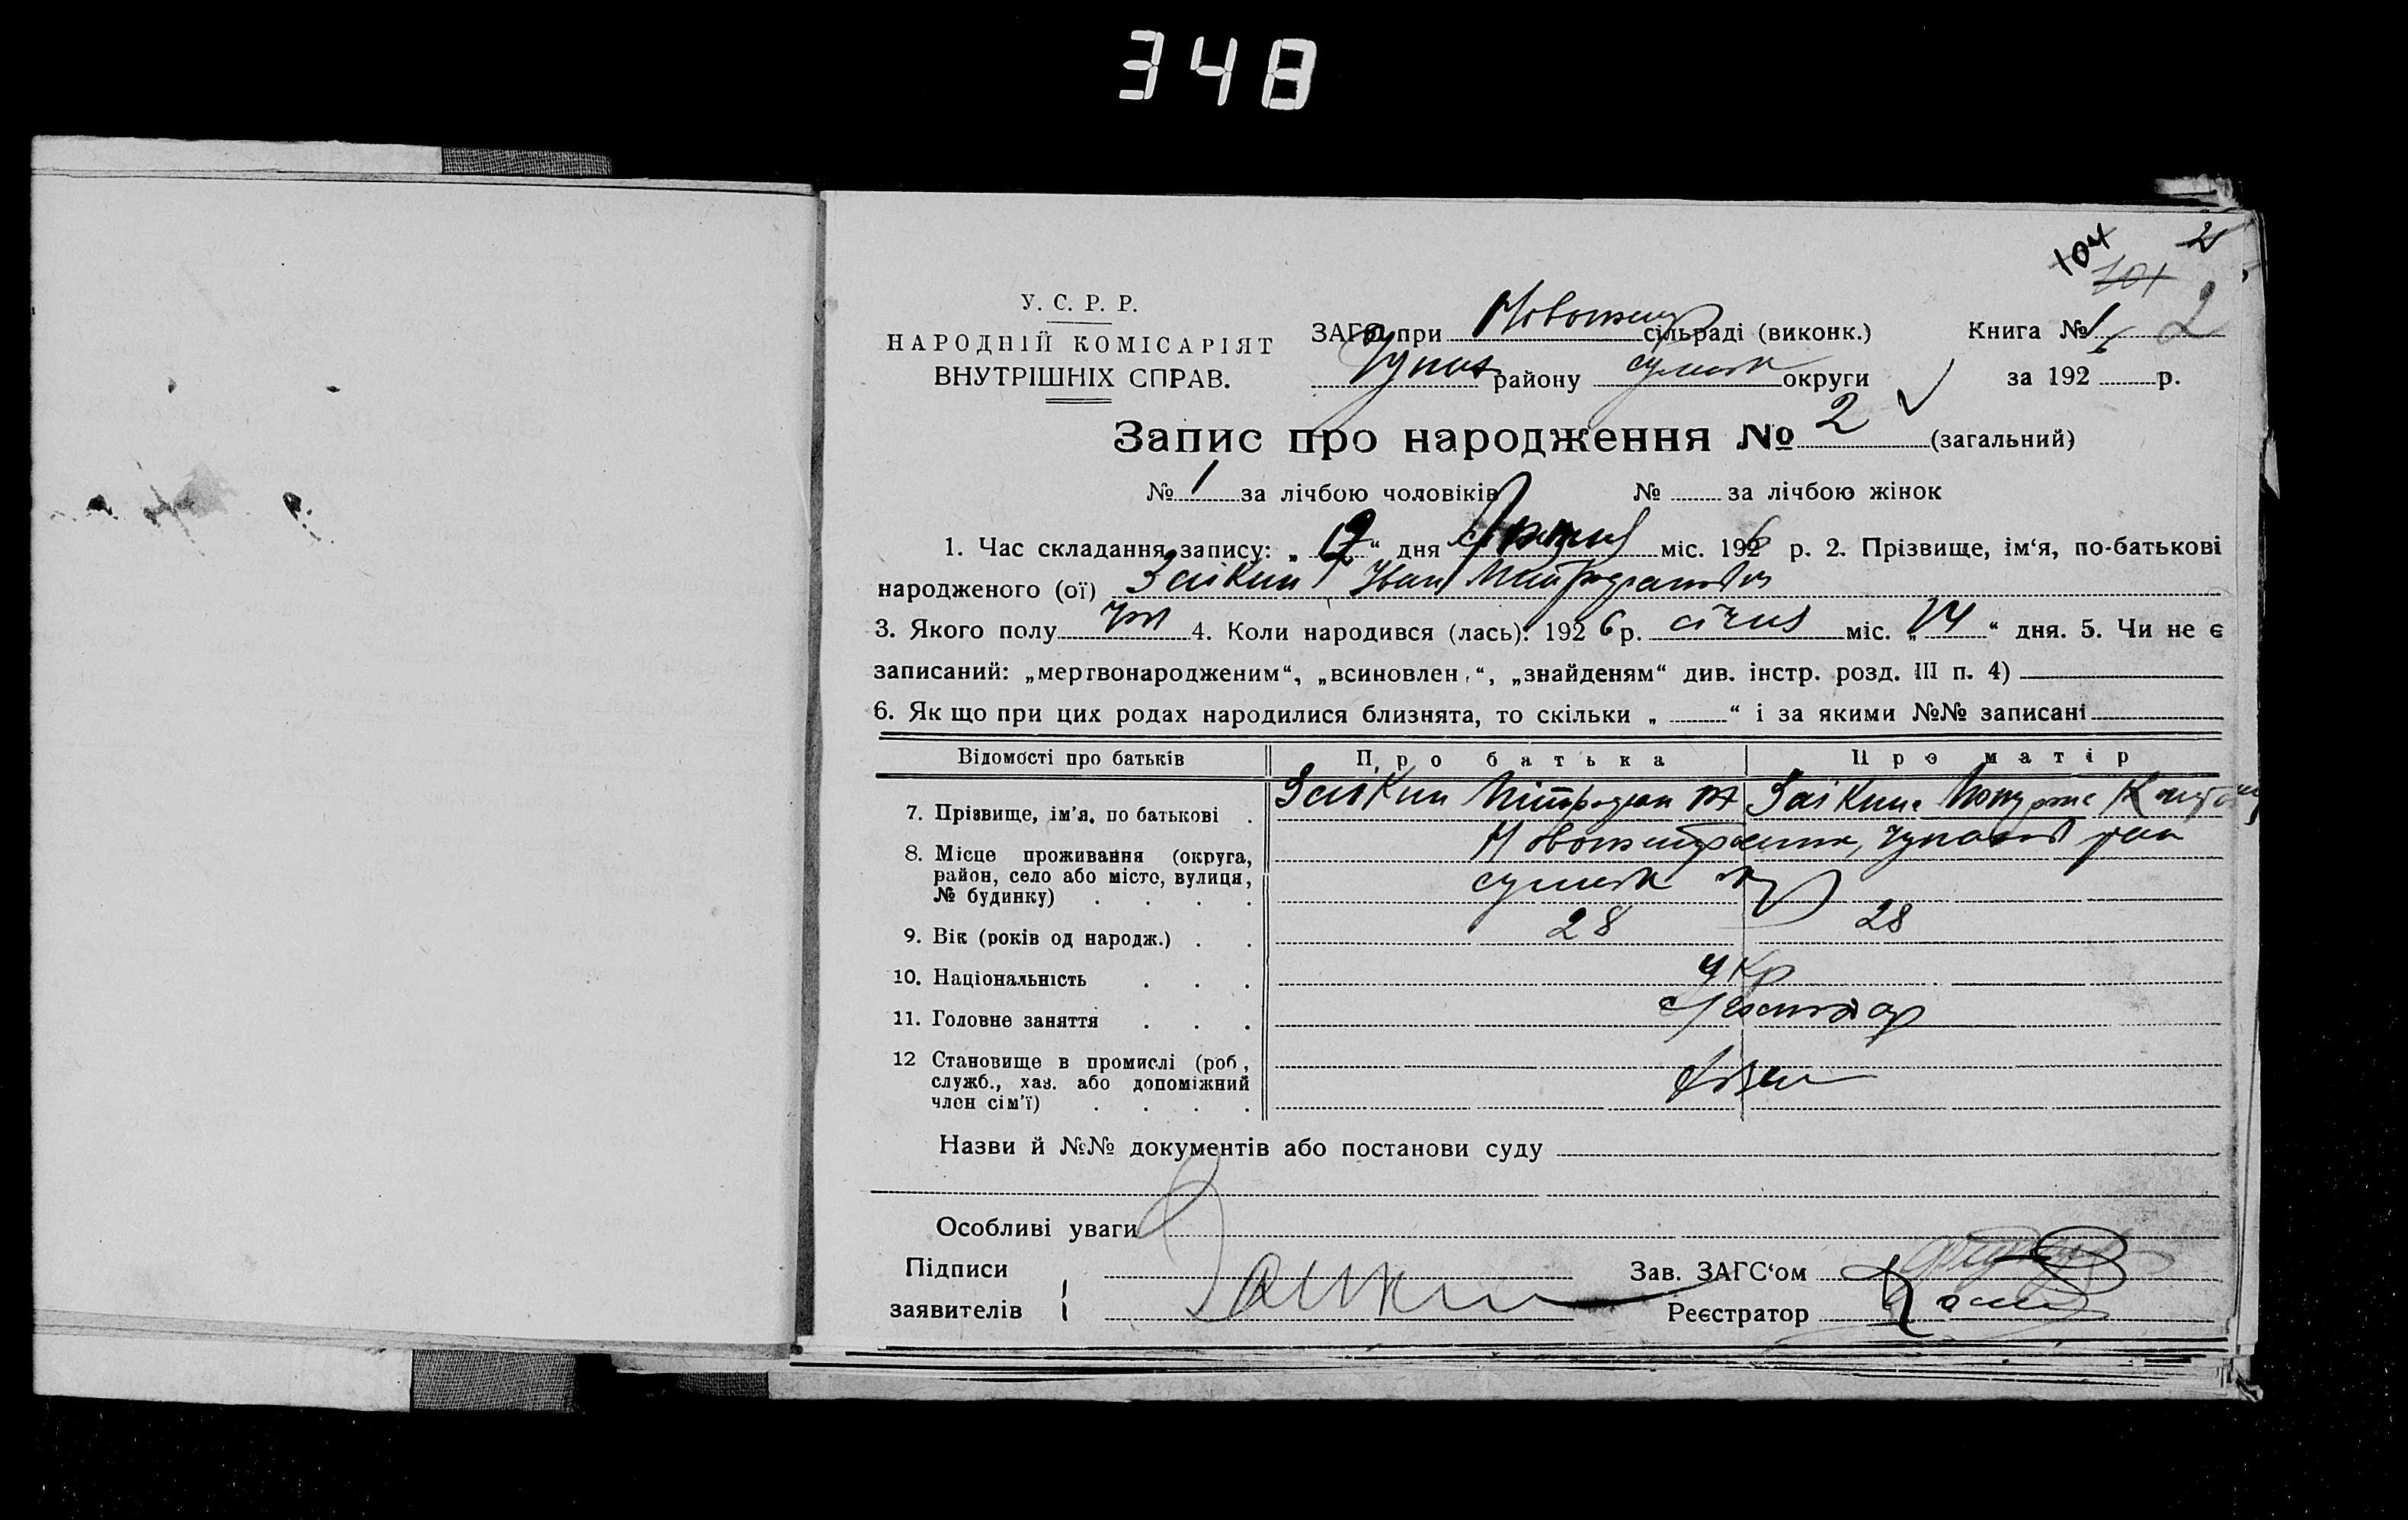 348
104
2
101
У. С. Р. Р.
НАРОДНІЙ КОМІСАРІЯТ
ВНУТРІШНІХ СПРАВ.
ЗАГС при сільраді (виконк.) Книга № 1 2
району сумськ округи за 192 6 р.
Запис про народження № 2 (загальний)
№ 1 за лічбою чоловіків № за лічбою жінок
1. Час складання запису: „ “ дня міс. 1926 р. 2. Прізвище, ім‘я, по-батькові
народженого (ої) Заікин Іван Митрофанович
3. Якого полу чол 4. Коли народився (лась): 192 6 р. січня міс. „ 14 “ дня. 5. Чи не є
записаний: „мертвонародженим“, „всиновлен “, „знайденям“ див. інстр. розд. III п. 4)
6. Як що при цих родах народилися близнята, то скільки „ “ і за якими №№ записані
Відомості про батьків Про батька Про матір
7. Прізвище, ім'я, по батькові . Заікин Мітрофан Заікина
8. Місце проживання (округа,
район, село або місто, вулиця,
№ будинку) . . . . сумськ окр
9. Вік (років од народж.) . . 28 28
10. Національність . . . Укр
11. Головне заняття . . .
12 Становище в промислі (роб.,
служб., хаз. або допоміжний
член сім'ї) . . . .
Назви й №№ документів або постанови суду
Особливі уваги
Підписи
заявителів Заикин
Зав. ЗАГС‘ом
Реєстратор